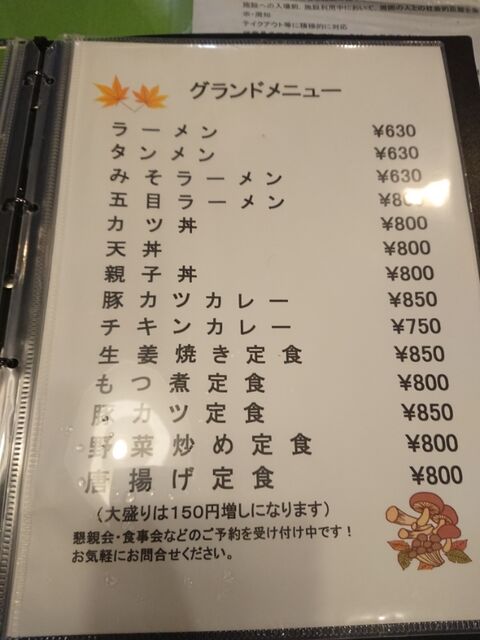 テイクアウト等に積極的に対応
グランドメニュー
ラーメン ¥630
タンメン ¥630
みそラーメン ¥630
五目ラーメン ¥800
カツ丼 ¥800
天丼 ¥800
親子丼 ¥800
豚カツカレー ¥850
チキンカレー ¥750
生姜焼き定食 ¥850
もつ煮定食 ¥800
豚カツ定食 ¥850
野菜炒め定食 ¥800
唐揚げ定食 ¥800
（大盛りは150円増しになります）
懇親会・食事会などのご予約を受け付け中です！
お気軽にお問合せください。